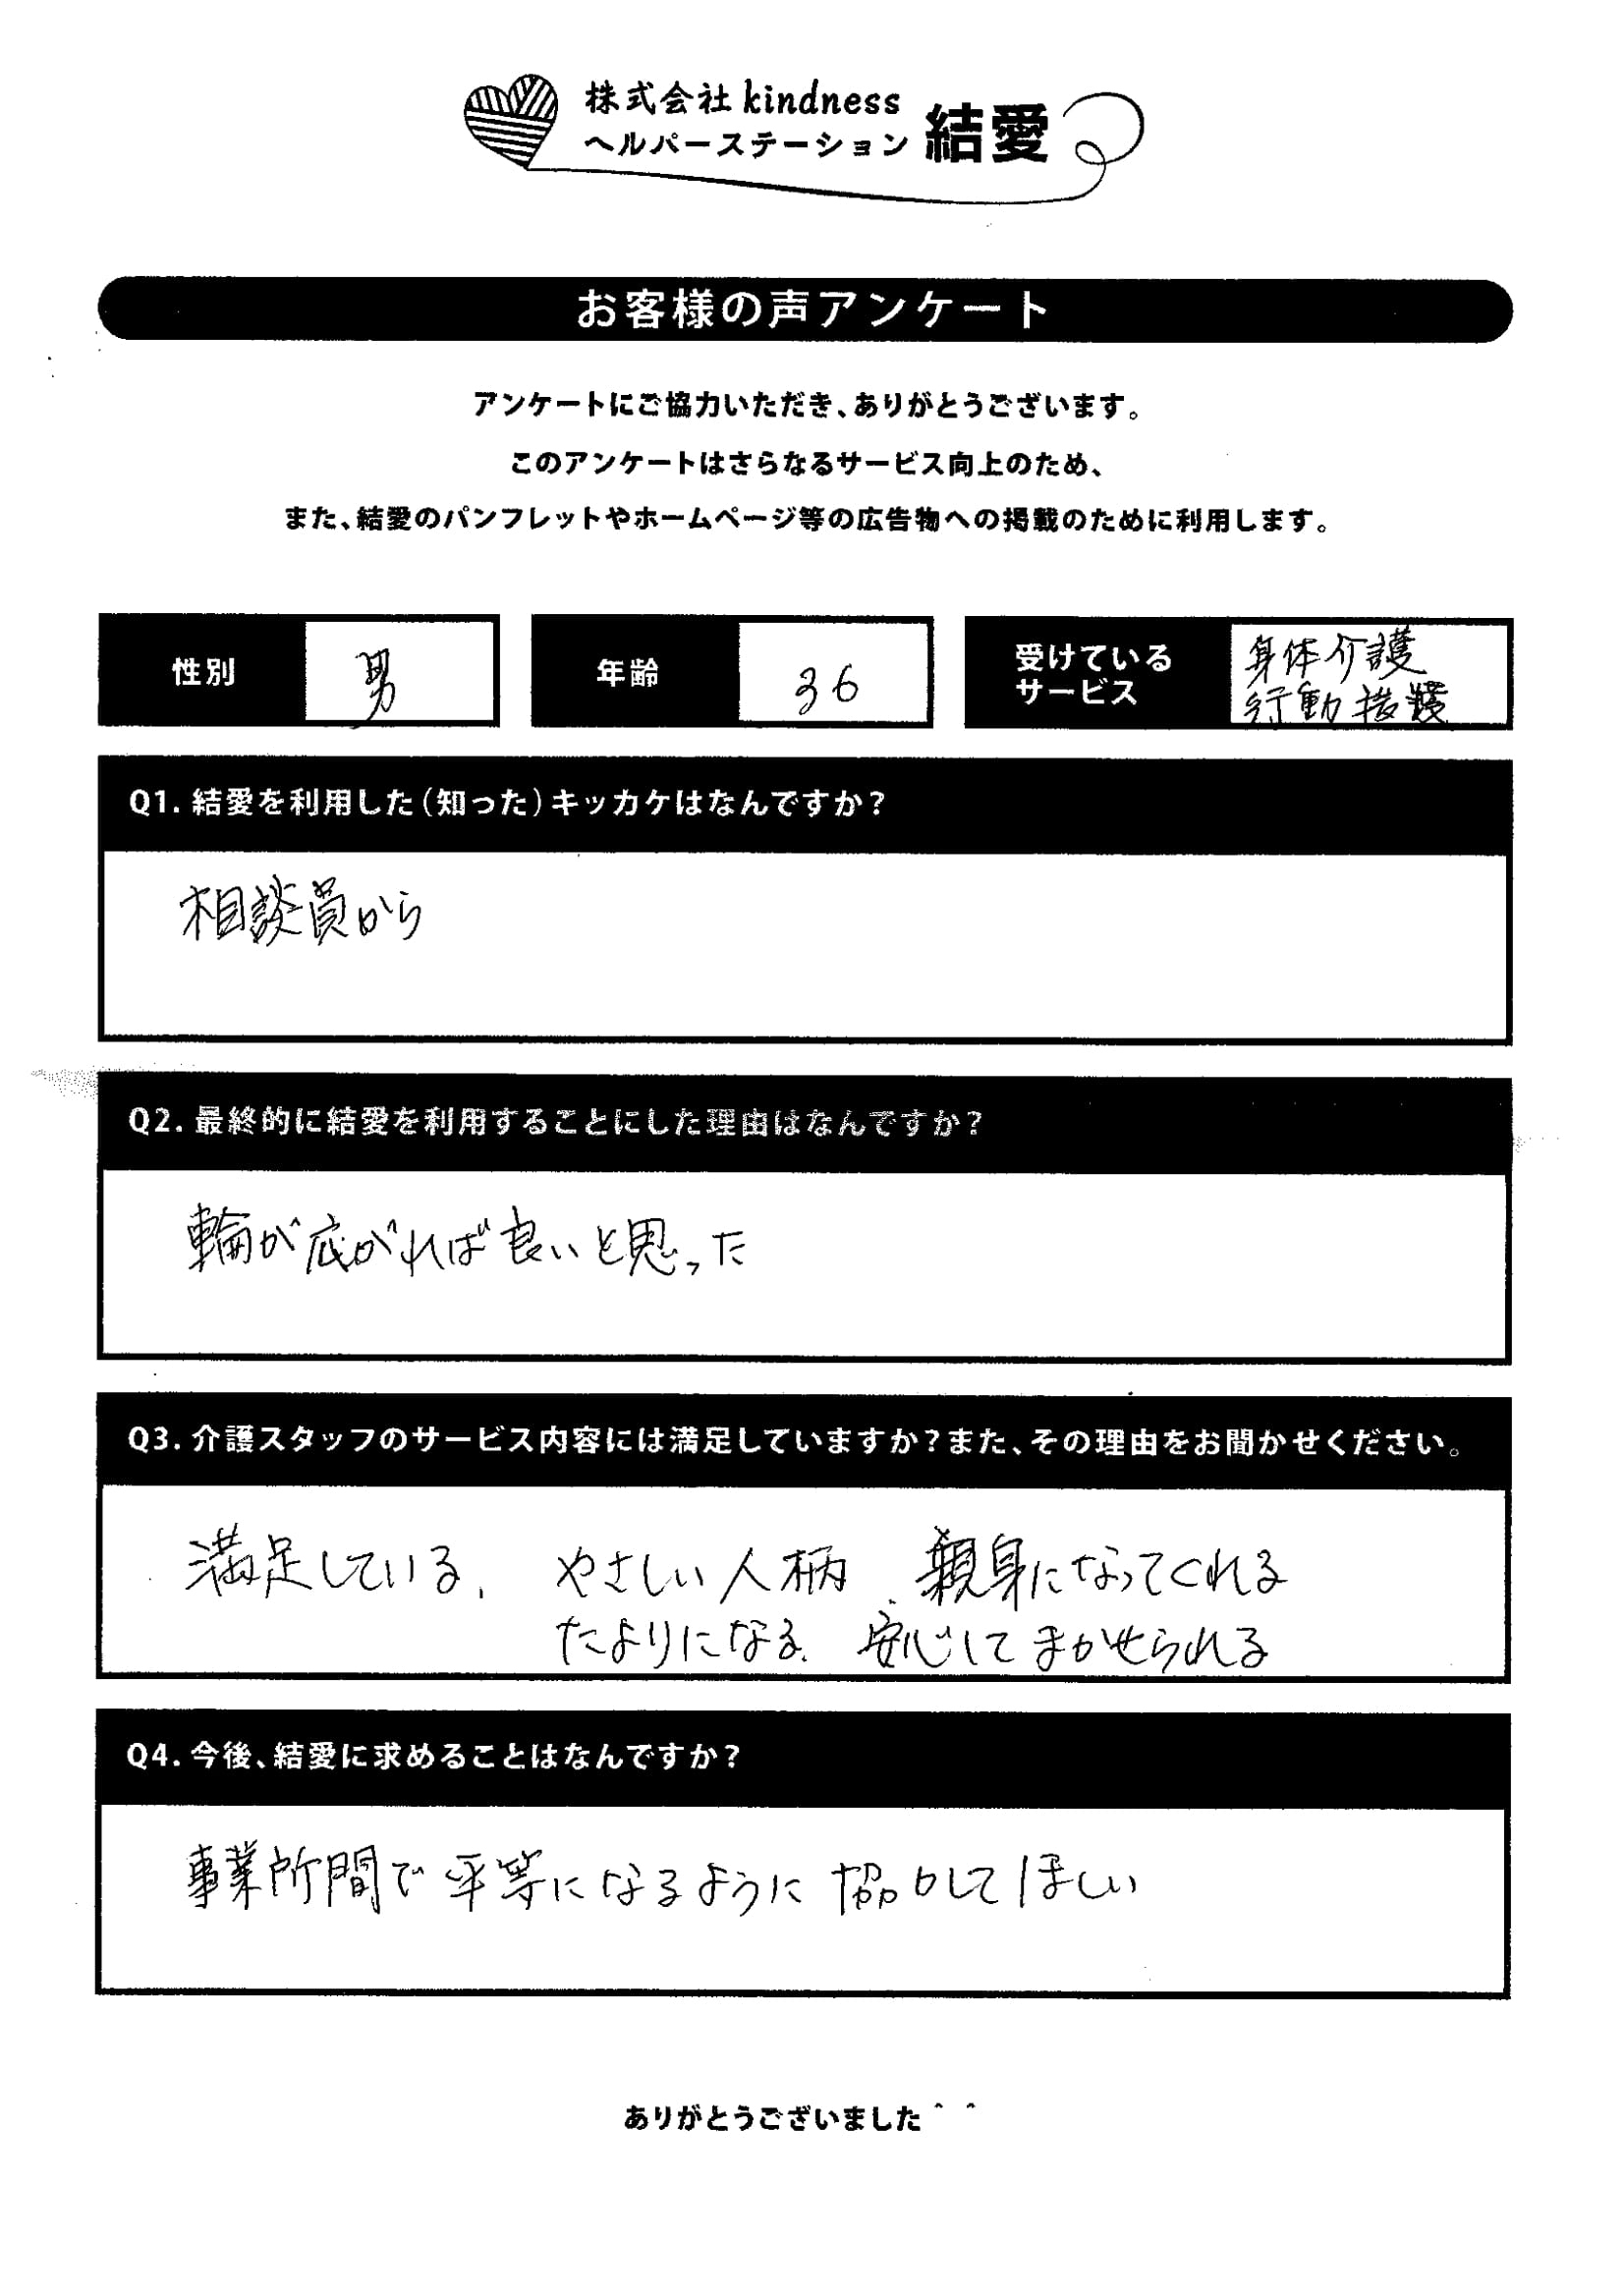 株式会社 kindness
ヘルパーステーション 結愛
お客様の声アンケート
アンケートにご協力いただき、ありがとうございます。
このアンケートはさらなるサービス向上のため、
また、結愛のパンフレットやホームページ等の広告物への掲載のために利用します。
性別 男 年齢 36 受けているサービス 身体介護
行動援護
Q1. 結愛を利用した(知った)キッカケはなんですか?
相談員から
Q2. 最終的に結愛を利用することにした理由はなんですか?
輪が広がれば良いと思った
Q3. 介護スタッフのサービス内容には満足していますか?また、その理由をお聞かせください。
満足している、 やさしい人柄、親身になってくれる
たよりになる、安心してまかせられる
Q4. 今後、結愛に求めることはなんですか?
事業所間で平等になるように協力してほしい
ありがとうございました＾＾